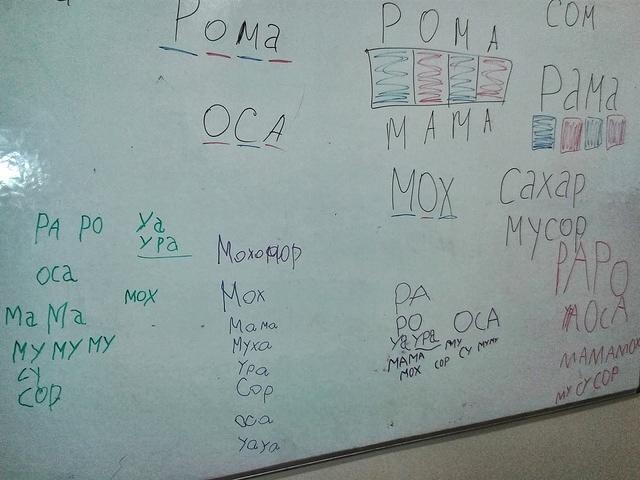 Рома
ОСА
РОМА
МАМА
СОМ
Рама
МОХ
Сахар
мусор
РА РО
Уа
ура
оса
мох
Ма Ма
му му му
су
сор
Мох
Мама
Муха
Ура
Сор
оса
уауа
РА
РО
ОСА
Уа ура
МАМА
му
мох сор су муму
РАРО
ОСА
МАМАМОХ
му су сор